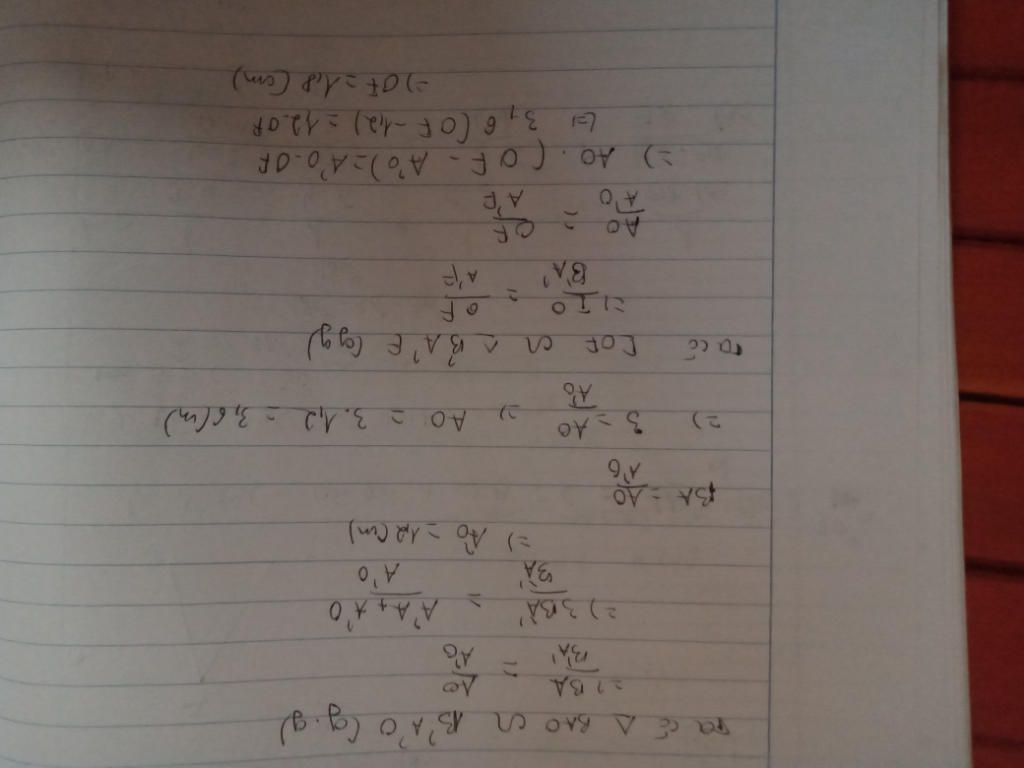 Ta có Δ BAO ∽ B'A'O (g.g)
=) BA/B'A' = AO/A'O
=) 3B'A'/B'A' = A'A + A'O/A'O
=) A'O = 1,2 (cm)
BA = AO/A'O
=) 3 = AO/A'O =) AO = 3.1,2 = 3,6 (cm)
Ta có IOF ∽ Δ B'A'F (g.g)
=) IO/B'A' = OF/A'F
AO/A'O = OF/A'F
=) AO . (OF - A'O) = A'O.OF
(=) 3,6 (OF - 1,2) = 1,2.OF
=) OF = 1,8 (cm)